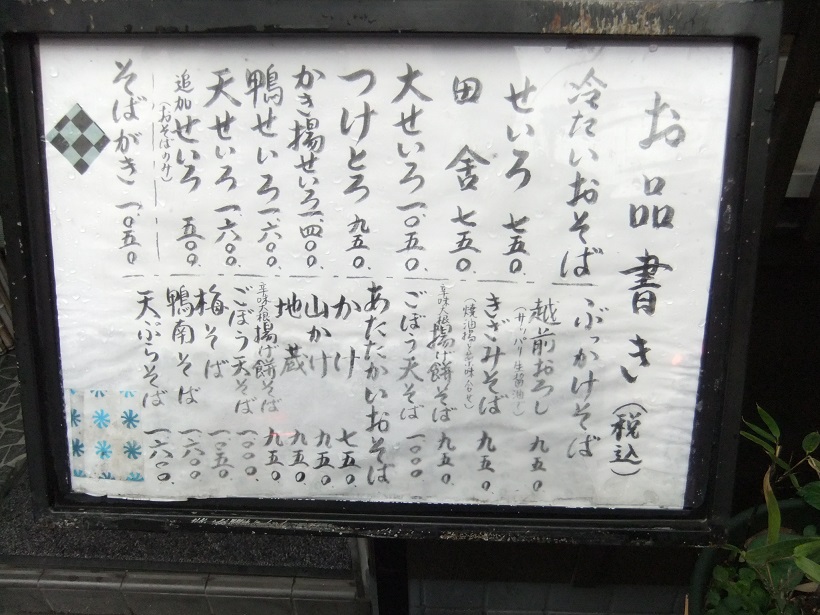 お品書き(税込)
冷たいおそば
せいろ 七五〇.
田舎 七五〇.
大せいろ 一、〇五〇.
つけとろ 九五〇.
かき揚せいろ 一、四〇〇.
鴨せいろ 一、六〇〇.
天せいろ 一、六〇〇.
追加せいろ 五〇〇.
(おそばのみ)
そばがき 一、〇五〇.
ぶっかけそば
越前おろし 九五〇.
(サッパリ生醤油)
きざみそば 九五〇.
辛味大根揚げ餅そば 九五〇.
ごぼう天そば 一、〇〇〇
あたたかいおそば
かけ 七五〇.
山かけ 九五〇.
地蔵 九五〇.
辛味大根揚げ餅そば 九五〇.
ごぼう天そば 一、〇〇〇
梅そば 一、〇五〇.
鴨南そば 一、六〇〇.
天ぷらそば 一、六〇〇.